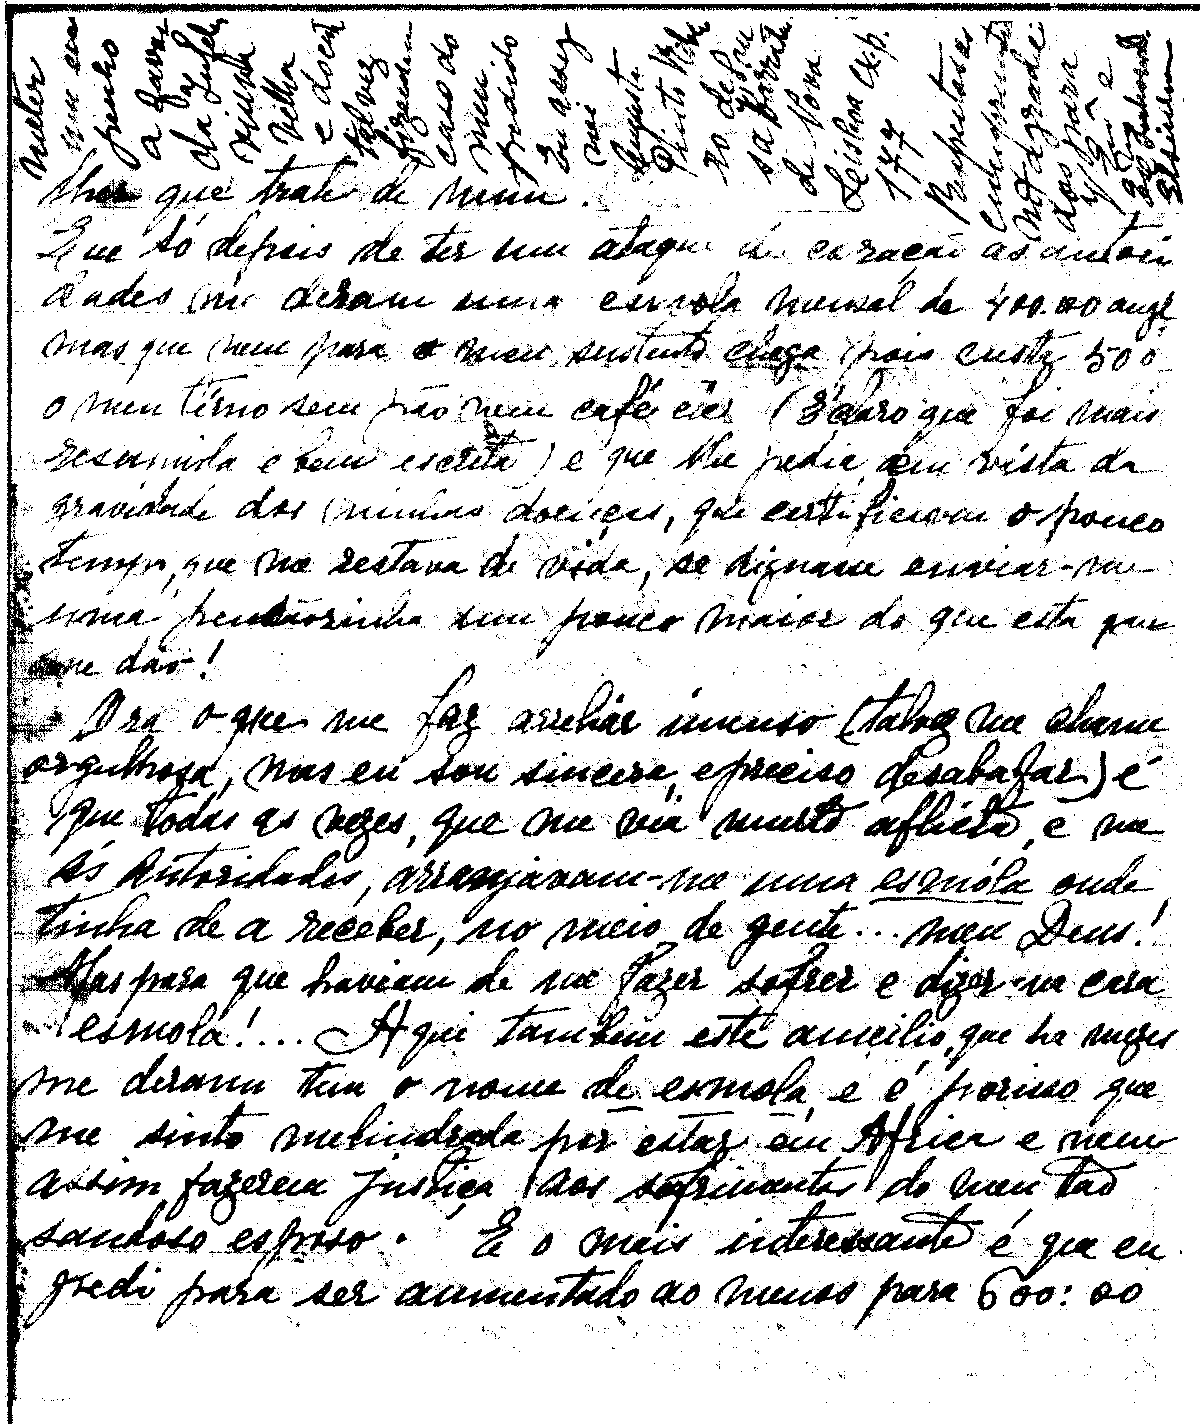 meter
um em
penho
a favor
da infeliz
viúva
velha
e doente
talvez
fazendo
caso do
meu
pedido
Eu assez
nei
Augusta
Pinto
20 de
sa
de Nova
Lisboa Cxp.
177
Respeitosos
cumprimentos
agrade
dos para
V. Ex.ª e
Ex.ma Senhora
que trate de mim.
Que só depois de ter um ataque de coração as autori
dades me deram uma esmola mensal de 400.00 angl
mas que nem para o meu sustento chega pois custa 500
o meu têrmo sem pão nem café etc (que foi mais
resumida e bem escrita) e que lhe pedia, em vista da
gravidade das minhas doenças, que certificavam o pouco
tempo, que me restava de vida, se dignasse enviar-me
uma pensãozinha um pouco maior do que esta que
me dão!
Ora o que me faz arreliar imenso (talvez me chame
orgulhosa, mas eu sou sincera, e preciso desabafar) é
que todas as vezes, que me via muito aflicta, e ia
ás Autoridades, arranjavam-me uma esmóla onde
tinha de a receber, no meio de gente... meu Deus!
Mas para que haviam de me fazer sofrer e dizer-me cara
esmola!... Aqui tambem este aucilio, que ha mezes
me deram tem o nome de esmola, e é porisso que
me sinto melindrada por estar em Africa e nem
assim fazerem justiça aos sofrimentos do meu tão
saudoso esposo. E o mais interessante é que eu
pedi para ser aumentado ao menos para 600:00